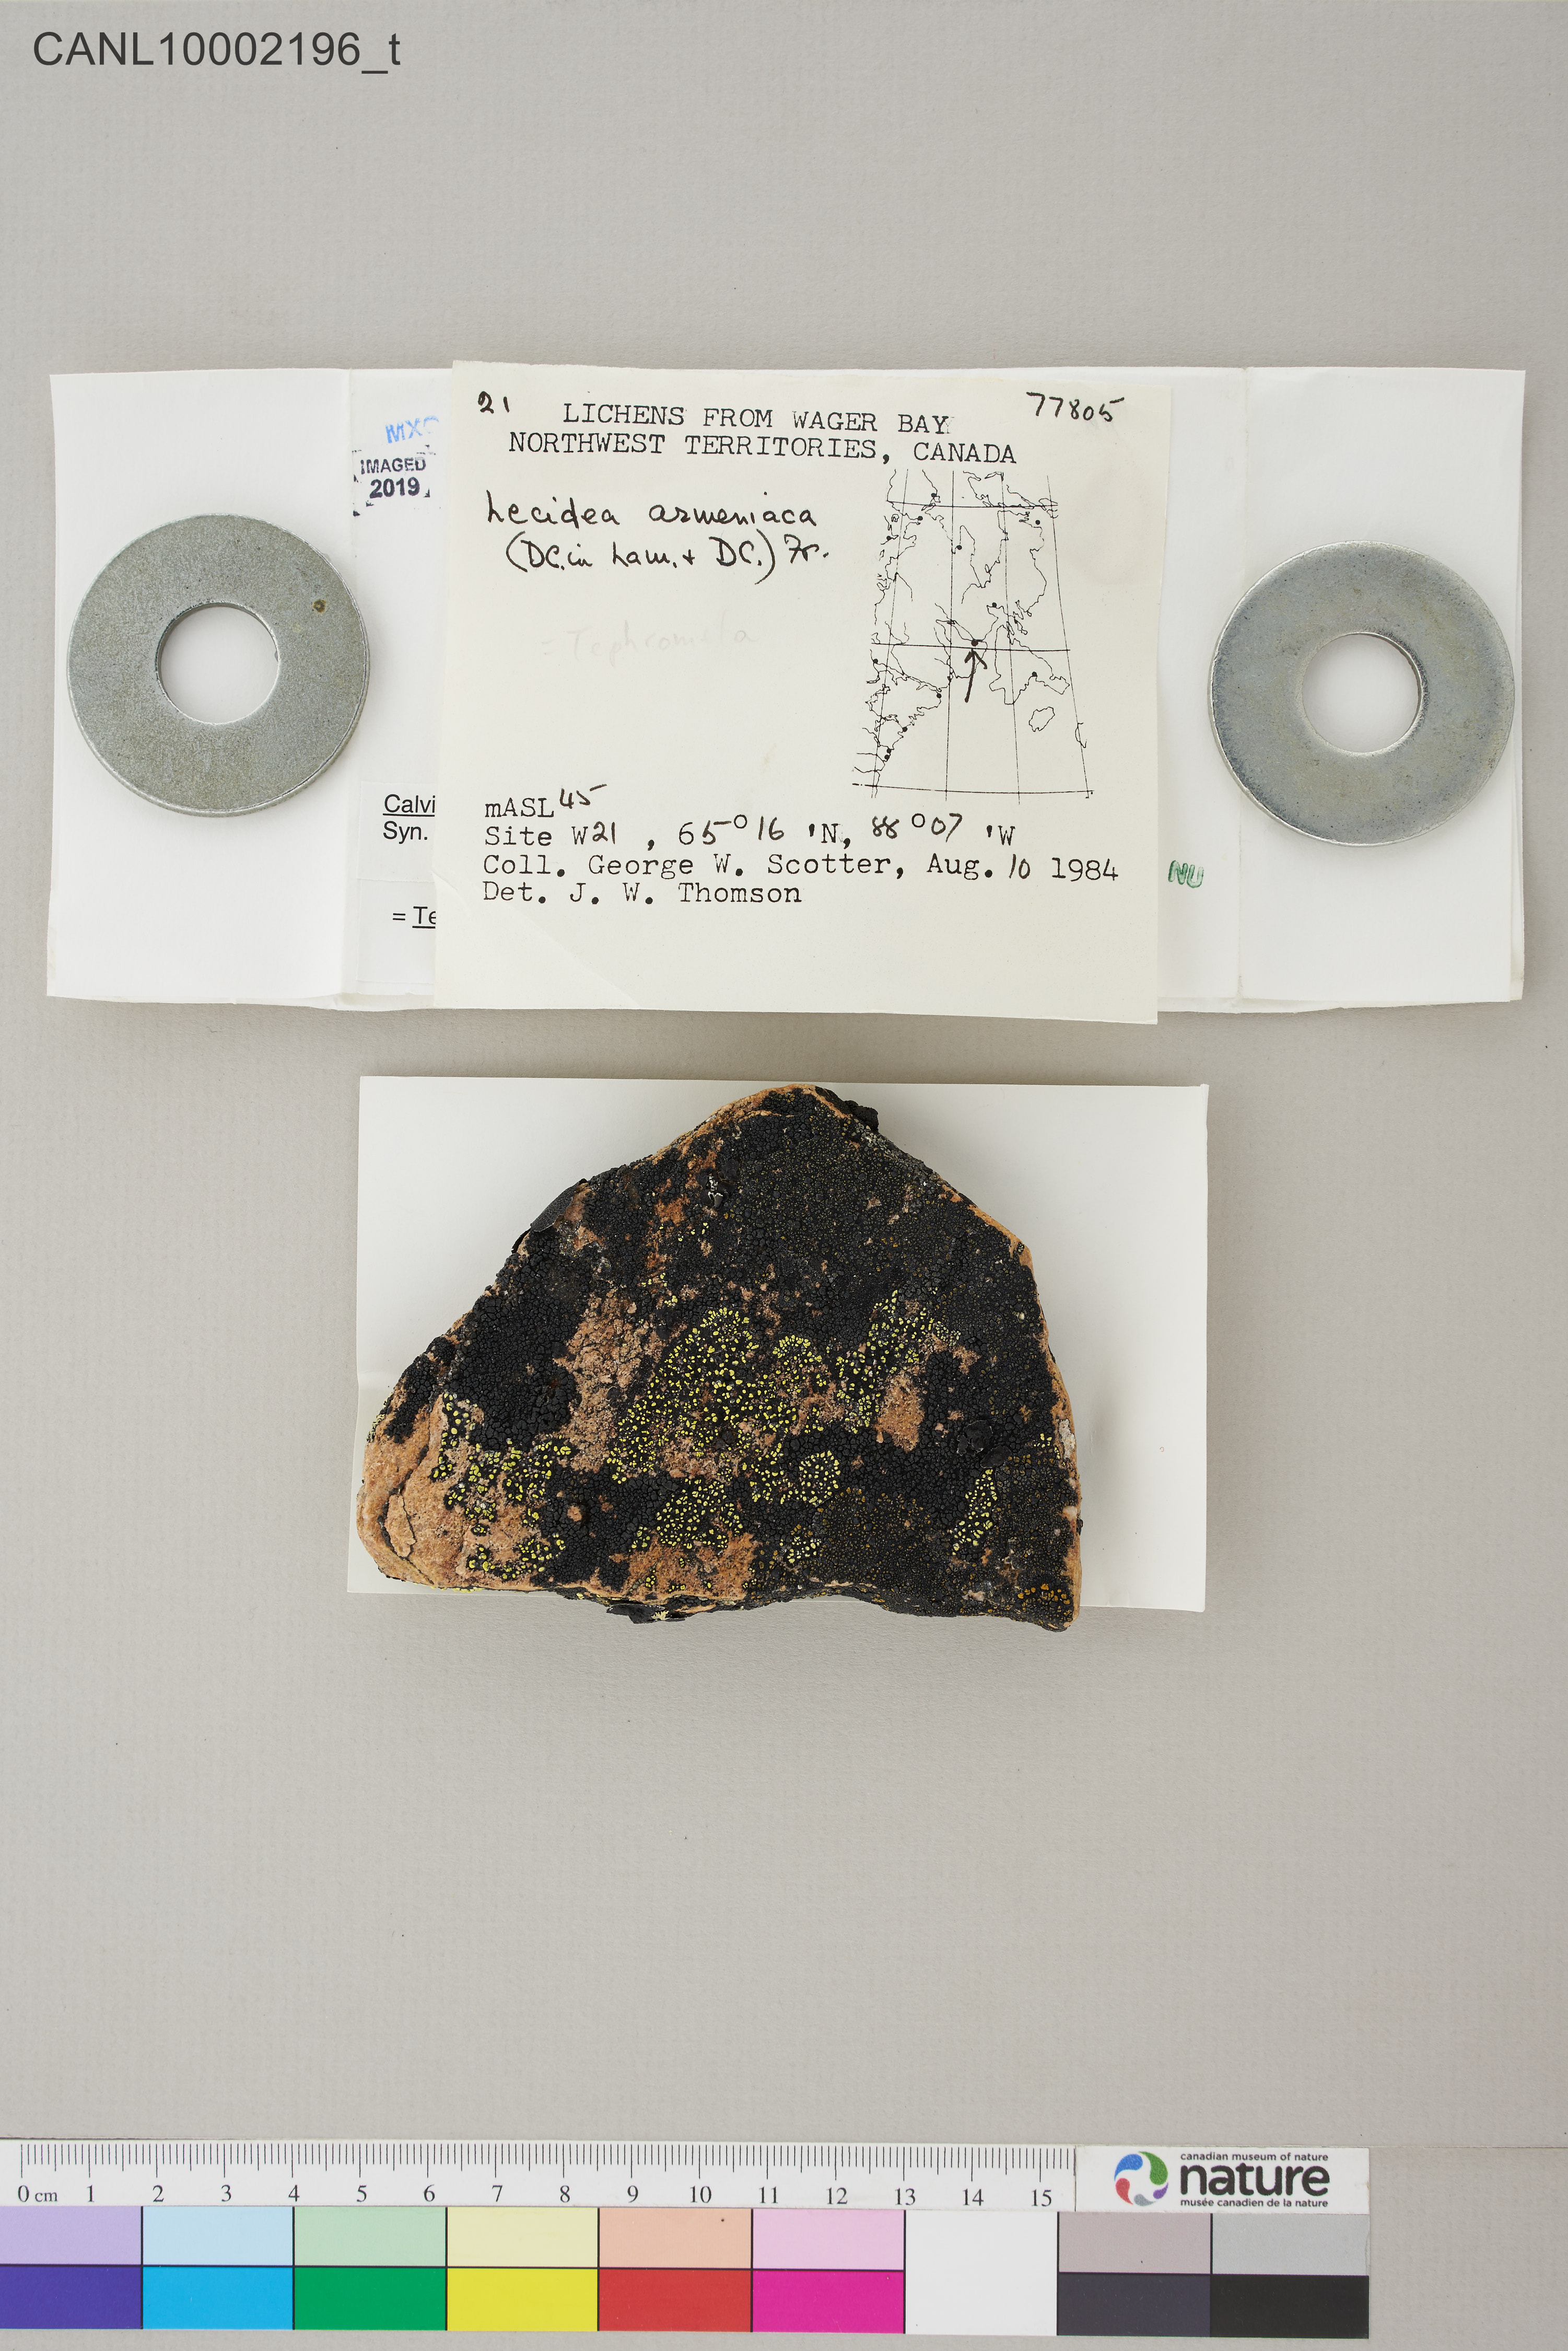 CANL10002196_t
21
77805
LICHENS FROM WAGER BAY
NORTHWEST TERRITORIES, CANADA
MXC
IMAGED
2019
Lecidea armeniaca
(DC. in Lam. + DC.) Fr.
= Tephromela
Calvi
Syn.
= Te
mASL 45
Site W21 , 65°16 'N, 88°07 'W
Coll. George W. Scotter, Aug. 10 1984
Det. J. W. Thomson
NU
0 cm 1 2 3 4 5 6 7 8 9 10 11 12 13 14 15
canadian museum of nature
nature
musée canadien de la nature